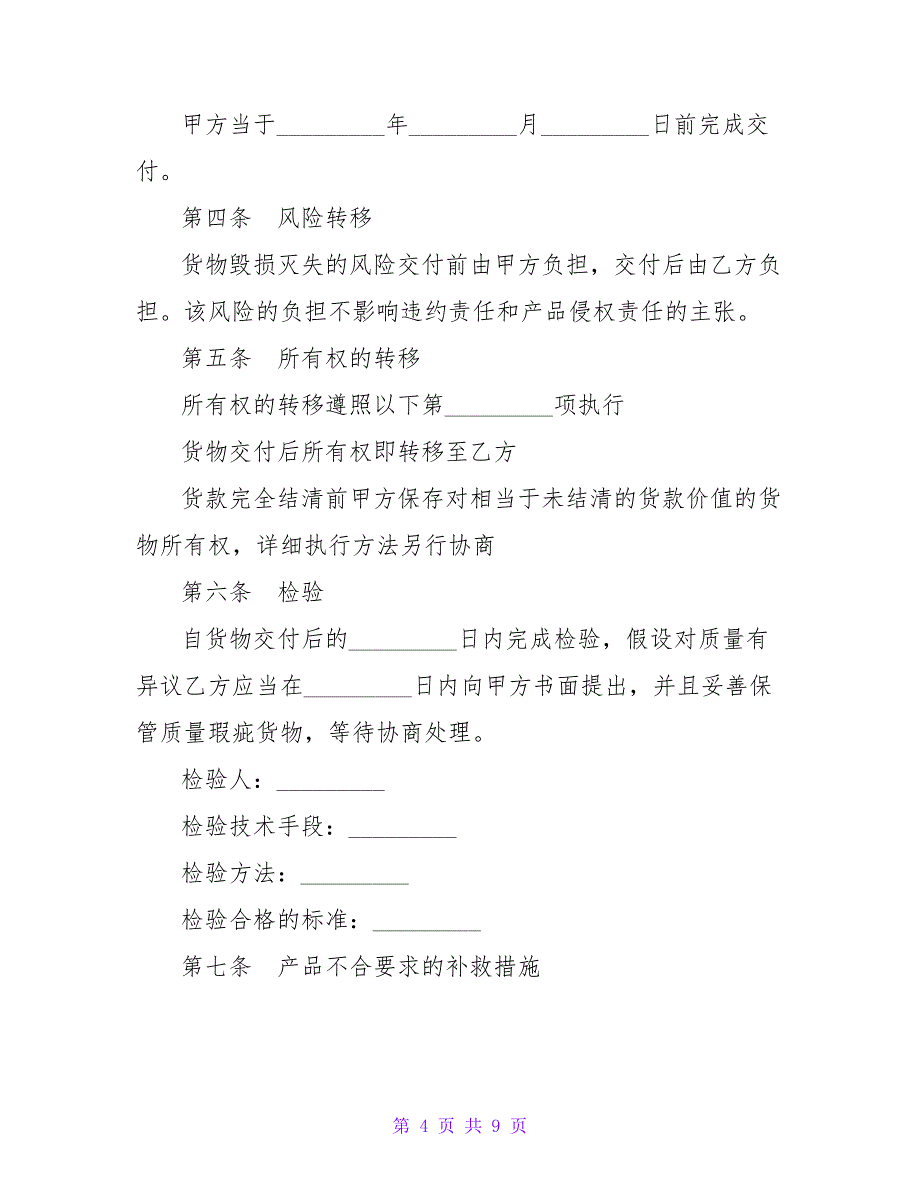 甲方当于_________年_________月_________日前完成交
付。
第四条　风险转移
货物毁损灭失的风险交付前由甲方负担，交付后由乙方负
担。该风险的负担不影响违约责任和产品侵权责任的主张。
第五条　所有权的转移
所有权的转移遵照以下第_________项执行
货物交付后所有权即转移至乙方
货款完全结清前甲方保存对相当于未结清的货款价值的货
物所有权，详细执行方法另行协商
第六条　检验
自货物交付后的_________日内完成检验，假设对质量有
异议乙方应当在_________日内向甲方书面提出，并且妥善保
管质量瑕疵货物，等待协商处理。
检验人：_________
检验技术手段：_________
检验方法：_________
检验合格的标准：_________
第七条　产品不合要求的补救措施
第 4 页 共 9 页